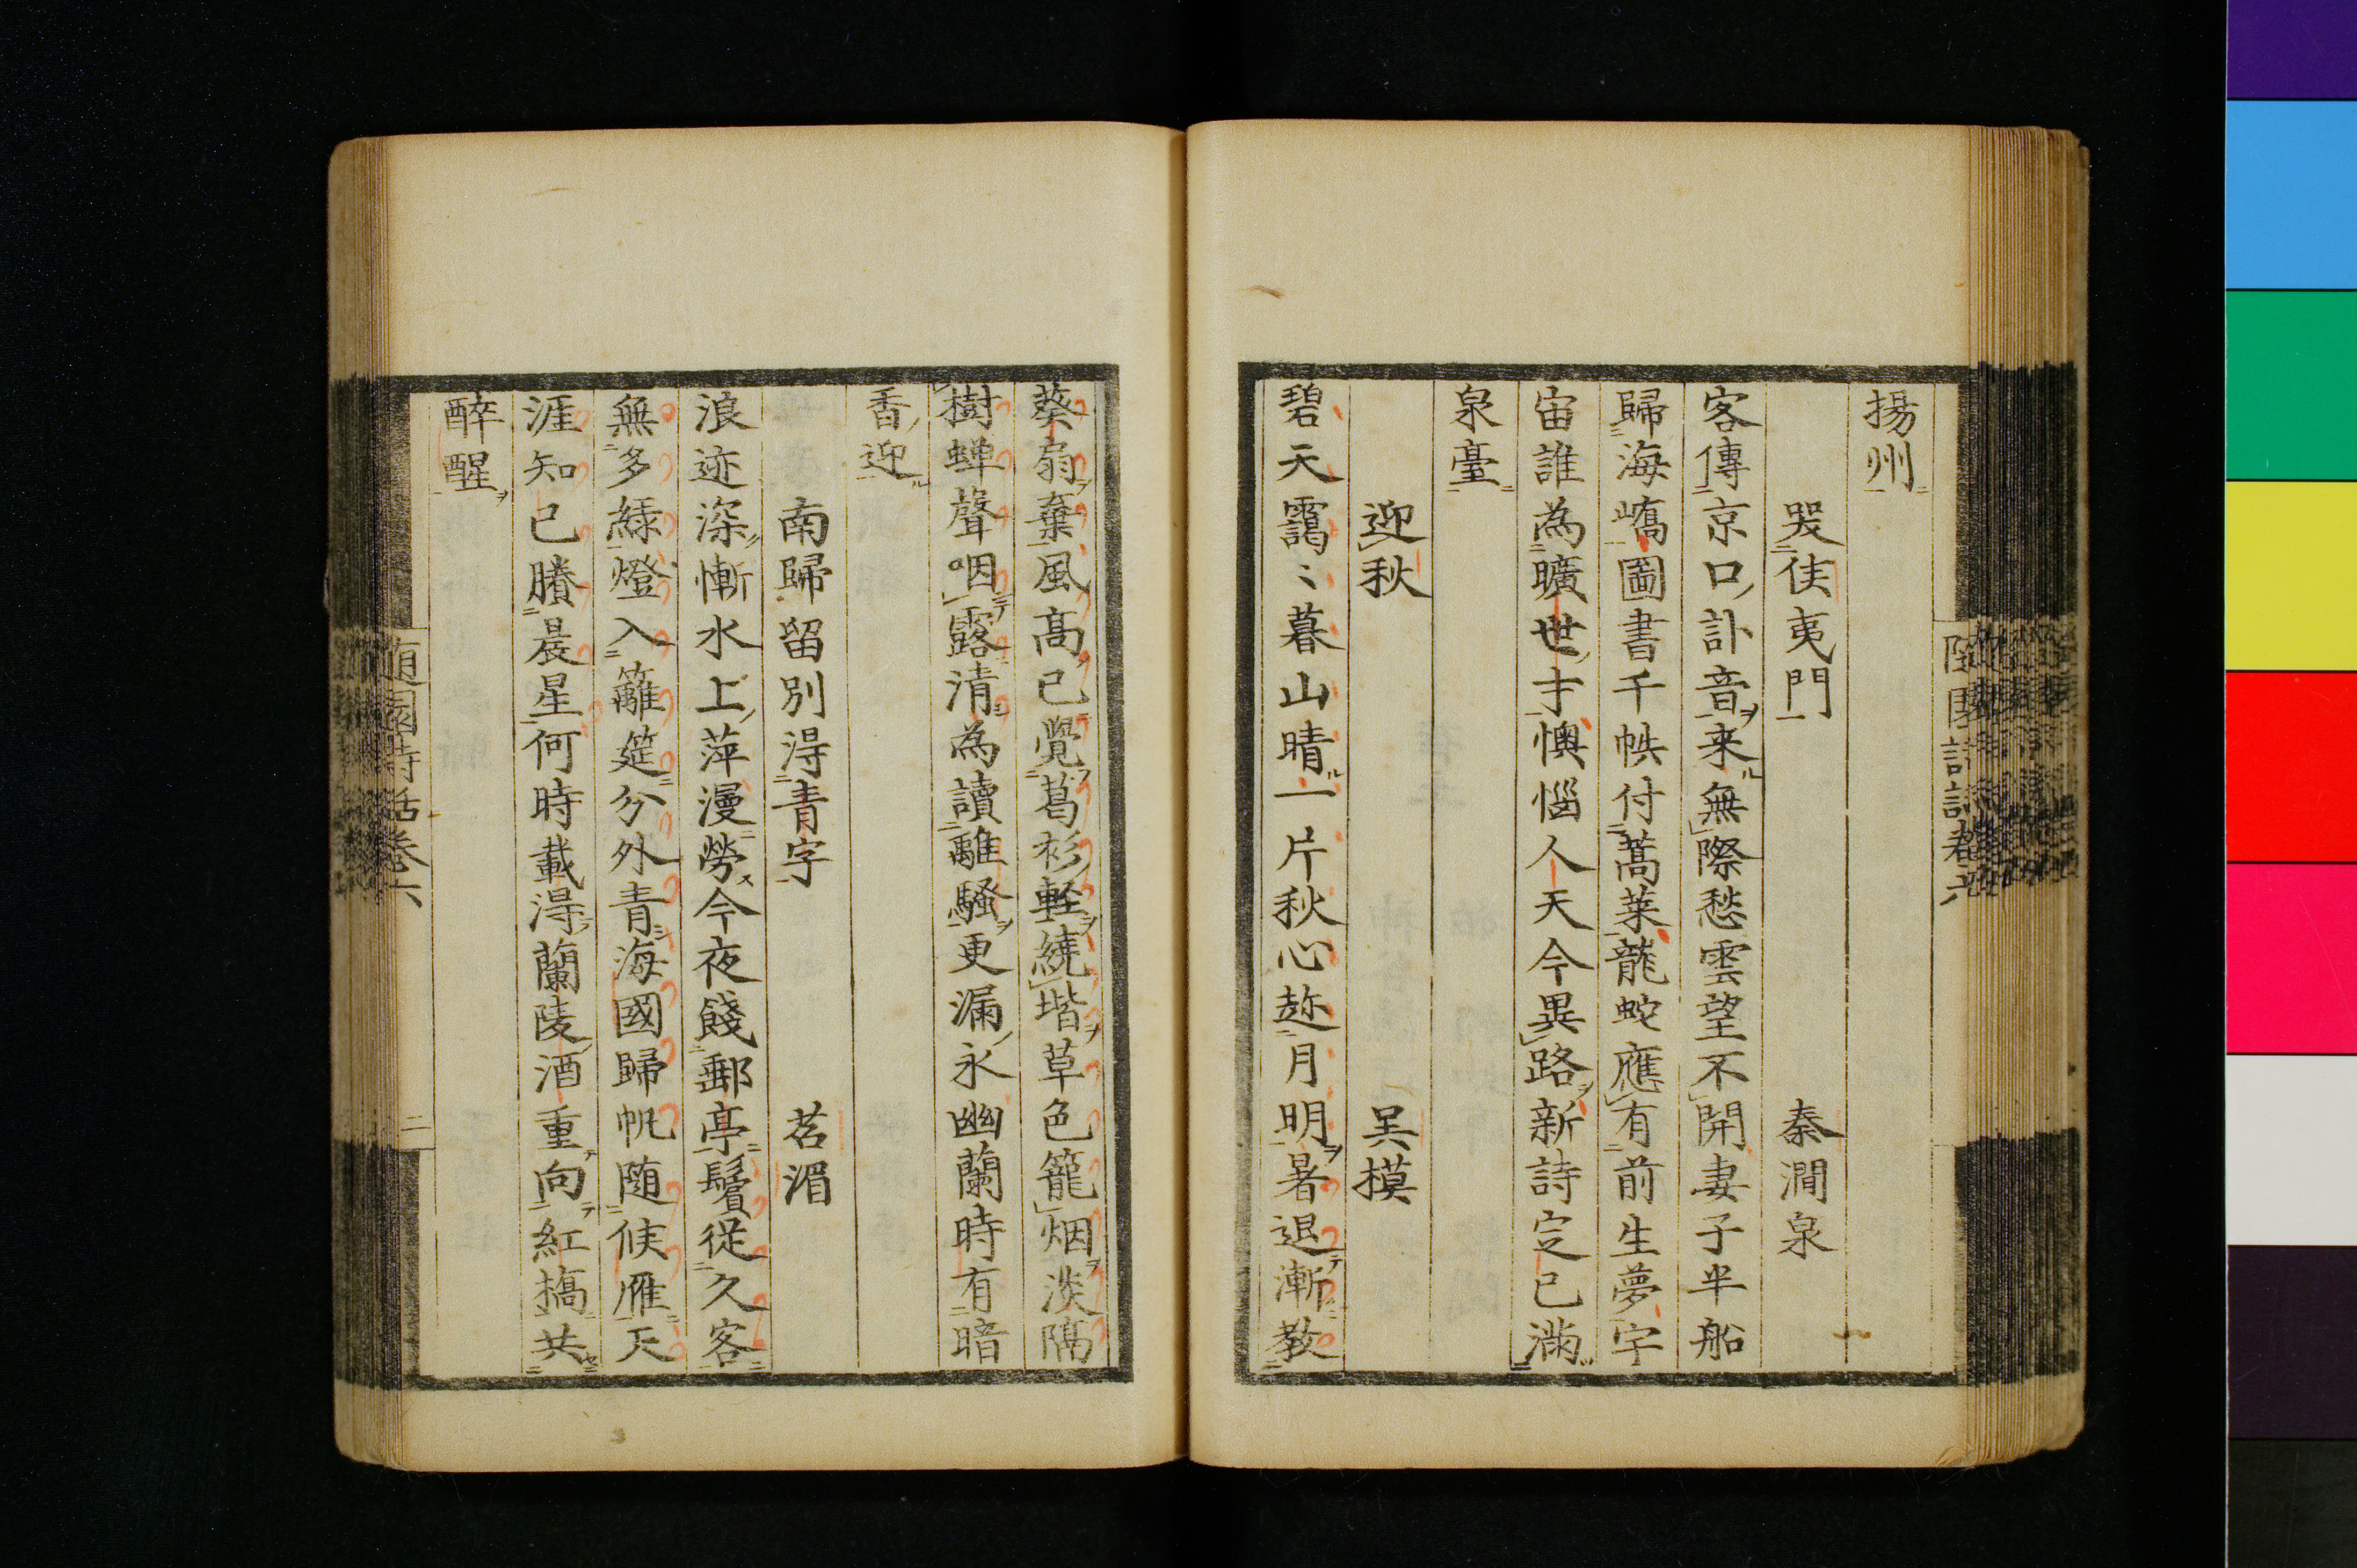 揚州
哭侯夷門　秦澗泉
客傳京口訃音来無際愁雲望不開妻子半船
歸海嶠圖書千帙付蒿莱龍蛇應有前生夢宇
宙誰為曠世才懊惱人天今異路新詩定已滿
泉臺
迎秋　吴模
碧天靄〻暮山晴一片秋心趂月明暑退漸教
葵扇棄風高已覺葛衫軽繞堦草色籠烟淡隔
樹蝉聲咽露清為讀離騒更漏永幽蘭時有暗
香迎
南歸留別淂青字　茗湄
浪迹深慚水上萍漫勞今夜餞郵亭鬢従久客
無多緑燈入籬筵分外青海國歸帆随候雁天
涯知己賸晨星何時載淂蘭陵酒重向紅橋共
醉醒
随園詩話卷六
二